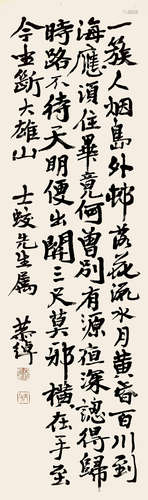 一簇人烟島外邨落花流水月黄昏百川到
海應須住畢竟何曾別有源夜深認得歸
時路不待天明便出關三尺莫邪橫在手至
今坐斷大雄山 士蛟先生属 恭綽